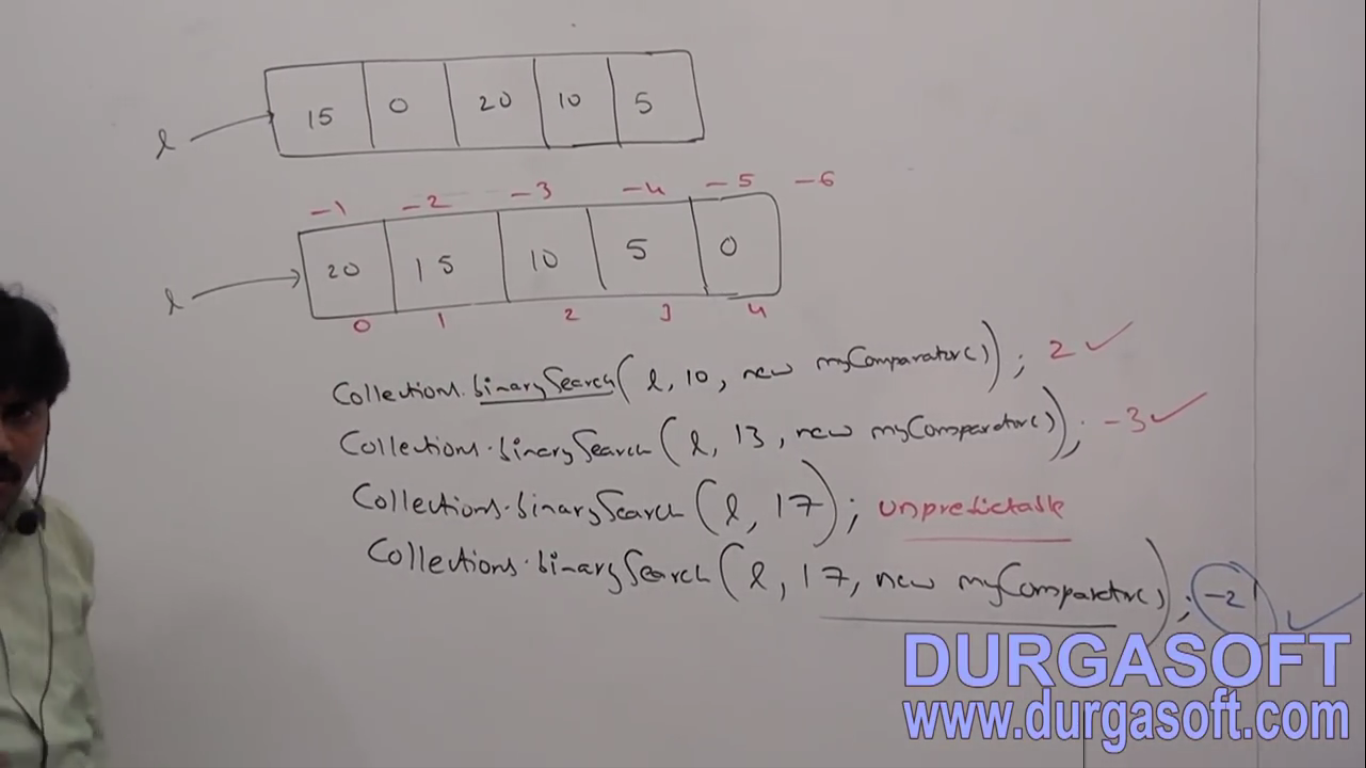 l 15 0 20 10 5
-1 -2 -3 -4 -5 -6
l 20 15 10 5 0
0 1 2 3 4
Collections.binarySearch(l, 10, new myComparator()); 2 ✓
Collections.binarySearch(l, 13, new myComparator()); -3 ✓
Collections.binarySearch(l, 17); unpredictable
Collections.binarySearch(l, 17, new myComparator()); -2 ✓
DURGASOFT
www.durgasoft.com